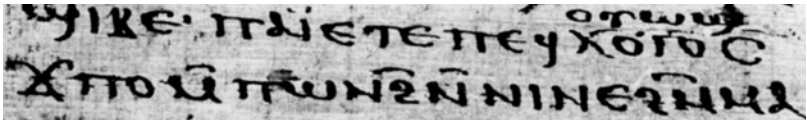 ⲟⲩⲱϣ
ϣⲓⲕⲉ· ⲡⲁⲓ̈ⲉⲧⲉⲡⲉϥⲗⲟⲅⲟⲥ̄
ϫⲡⲟⲙ̄ⲡⲱⲛϩ̄ⲛ̄ⲛⲓⲛⲉϩⲙ̄ⲙⲁ